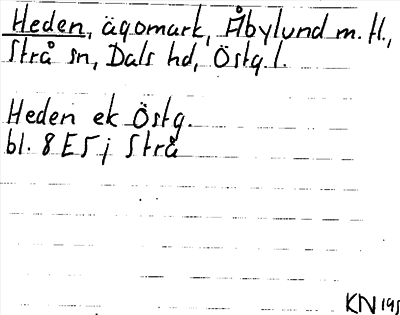 Heden, ägomark, Åbylund m.fl.,
Strå sn, Dals hd, Östg.l.
Heden ek Östg.
bl. 8 E5 j Strå
KN 195